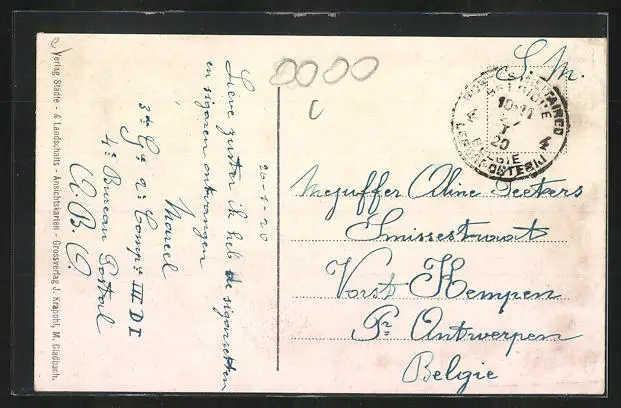 Verlag Städte- & Landschafts-Ansichtskarten - Grossverlag J. Krapohl, M. Gladbach.
20-1-20
Lieve zuster ik heb de sigaretten
en sigaren ontvangen
Marcel
3de Gie 2e Compie III DI
4e Bureau Postal
A.B.O.
0000
S.M.
BELGIQUE
10-11
I
20
4
BELGIE
LEGERPOSTERIJ
Mejuffer Aline Peeters
Smissestraat
Vorst Kempen
Pr. Antwerpen
Belgie